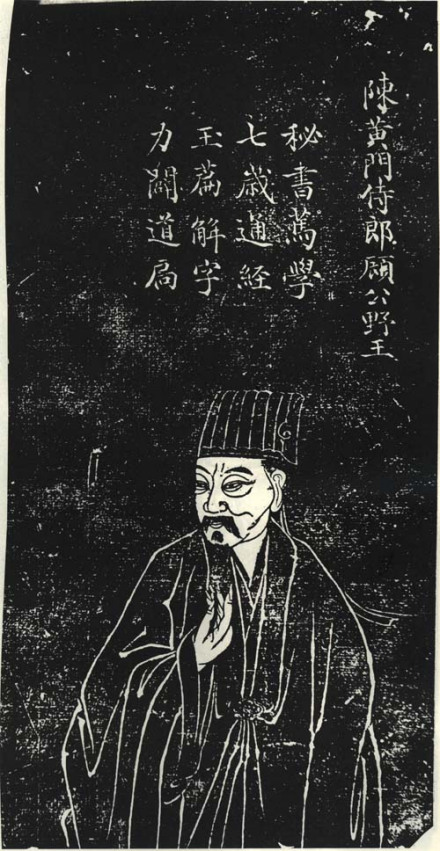 陳黃門侍郎顧公野王
秘書篤學
七歲通經
玉篇解字
力闢道扃